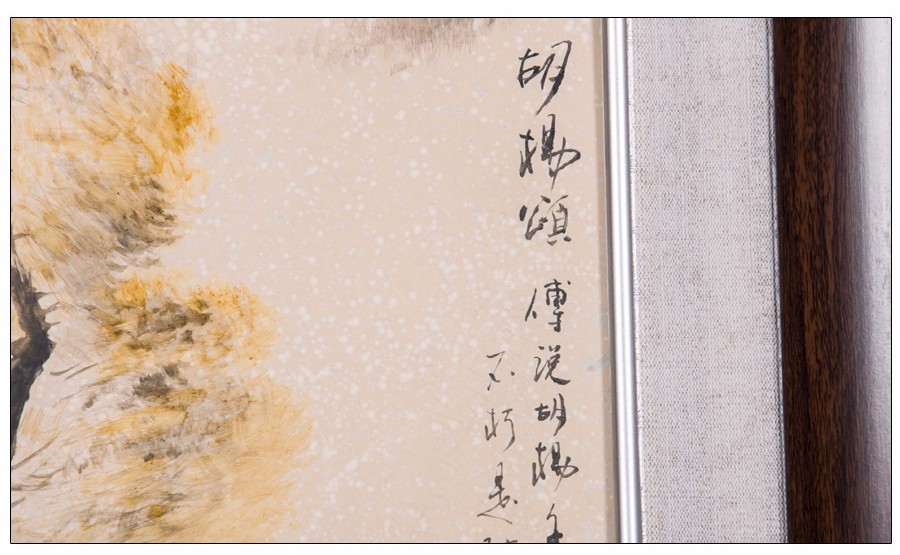 胡楊頌 傳說胡楊生
不朽是